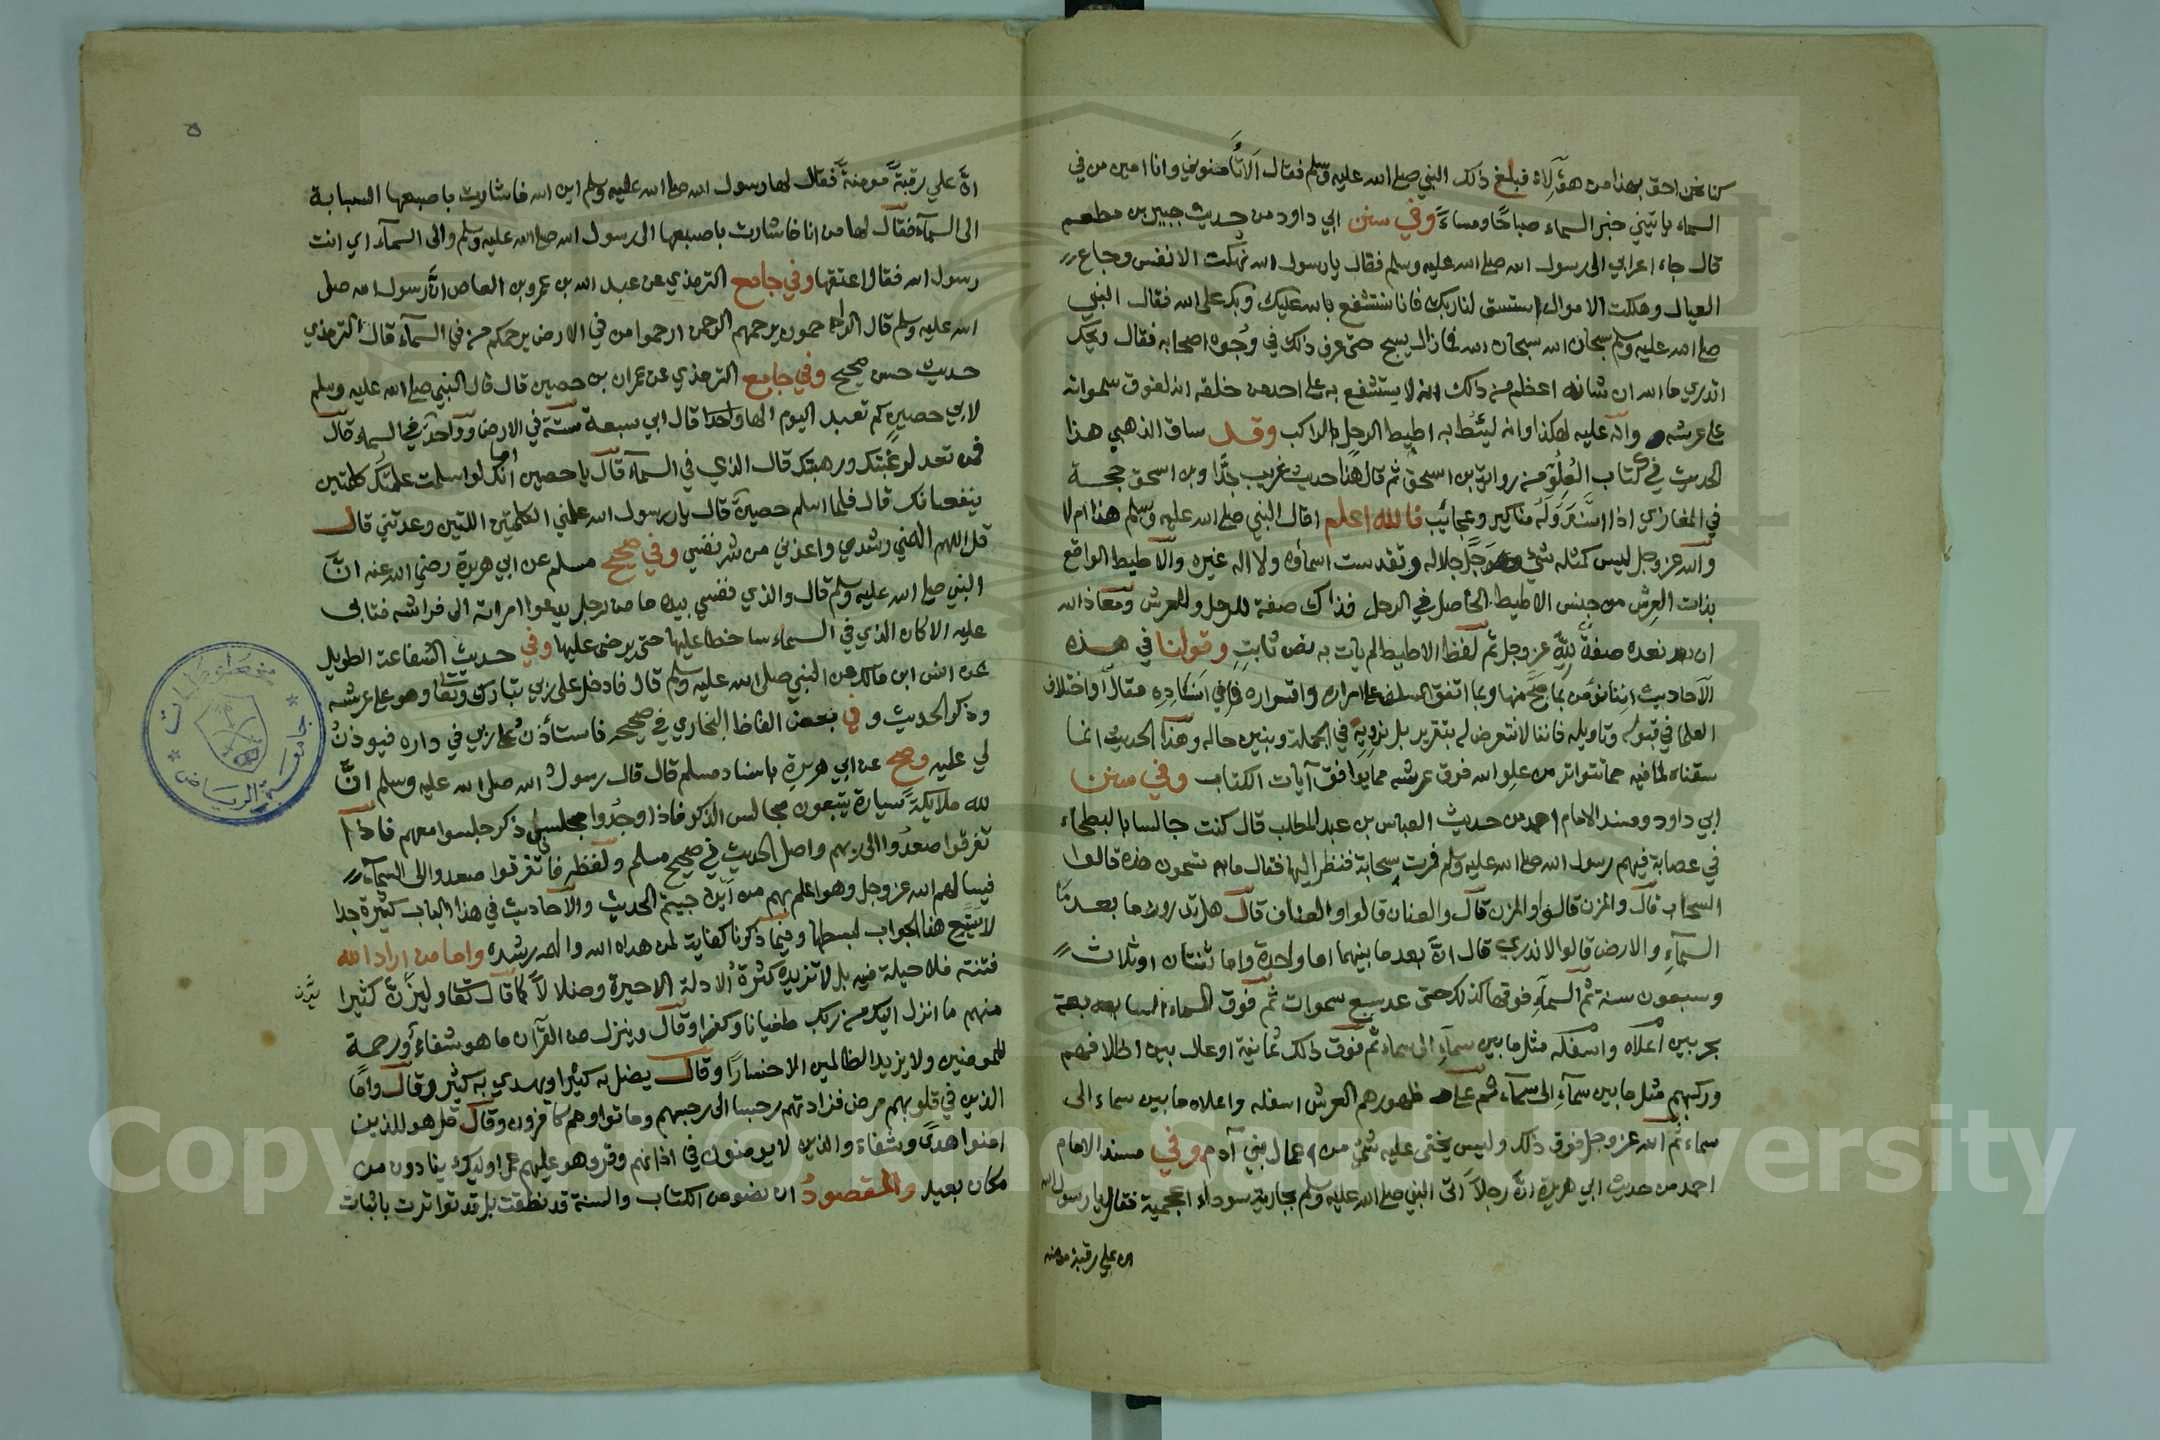 كنا نحن احق بهذا من هؤلاء فبلغ ذلك النبي صلى الله عليه وسلم فقال الا تأمنوني وانا امين من في
السماء ياتيني خبر السماء صباحا ومساء وفي سنن ابي داود من حديث جبير بن مطعم
قال جاء اعرابي الى رسول الله صلى الله عليه وسلم فقال يا رسول الله نهكت الانفس وجاع
العيال وهلكت الاموال استسق لنا ربك فانا نستشفع بالله عليك وبك على الله فقال النبي
صلى الله عليه وسلم سبحان الله سبحان الله فما زال يسبح حتى عرف ذلك في وجوه اصحابه فقال ويحك
اتدري ما الله ان شانه اعظم من ذلك انه لا يستشفع به على احد من خلقه انه لفوق سمواته
على عرشه وانه عليه لهكذا وانه ليئط به اطيط الرحل بالراكب وقد ساق الذهبي هذا
الحديث في كتاب العلو من رواية بن اسحق ثم قال هذا حديث غريب جدا وبن اسحق حجة
في المغازي اذا اسند وله مناكير وعجائب فالله اعلم اقال النبي صلى الله عليه وسلم هذا ام لا
والله عز وجل ليس كمثله شيء جل جلاله وتقدست اسماؤه ولا اله غيره والاطيط الواقع
بذات العرش من جنس الاطيط الحاصل في الرحل فذاك صفة للرحل وللعرش ومعاذ الله
ان نعده صفة لله عز وجل ثم لفظ الاطيط لم يات به نص ثابت وقولنا في هذه
الاحاديث اننا نؤمن بما صح منها وبما اتفق السلف على امراره واقراره فاما في اسناده مقال واختلاف
العلماء في قبوله وتاويله فاننا لا نتعرض له بتقرير بل نرويه في الجملة ونبين حاله وهذا الحديث انما
سقناه لما فيه مما تتواتر من علو الله فوق عرشه مما يوافق آيات الكتاب وفي سنن
ابي داود ومسند الامام احمد من حديث العباس بن عبد المطلب قال كنت جالسا بالبطحاء
في عصابة فيهم رسول الله صلى الله عليه وسلم فمرت سحابة فنظر اليها فقال ما تسمون هذه قالوا
السحاب قال والمزن قالوا والمزن قال والعنان قالوا والعنان قال هل تدرون ما بعد ما
السماء والارض قالوا لا ندري قال ان بعد ما بينهما اما واحدة واما ثنتان او ثلاث
وسبعون سنة ثم السماء فوقها كذلك حتى عد سبع سموات ثم فوق السماء السابعة
بحر بين اعلاه واسفله مثل ما بين سماء الى سماء ثم فوق ذلك ثمانية اوعال بين اظلافهم
وركبهم مثل ما بين سماء الى سماء ثم على ظهورهم العرش اسفله واعلاه ما بين سماء الى
سماء ثم الله عز وجل فوق ذلك وليس يخفى عليه شيء من اعمال بني آدم وفي مسند الامام
احمد من حديث ابي هريرة ان رجلا اتى النبي صلى الله عليه وسلم بجارية سوداء اعجمية فقال يا رسول الله
ان علي رقبة مومنه
ان علي رقبة مومنة فقال لها رسول الله صلى الله عليه وسلم اين الله فاشارت باصبعها السبابة
الى السماء فقال لها من انا فاشارت باصبعها الى رسول الله صلى الله عليه وسلم والى السماء اي انت
رسول الله فقال اعتقها وفي جامع الترمذي عن عبد الله بن عمرو بن العاص ان رسول الله صلى
الله عليه وسلم قال الراحمون يرحمهم الرحمن ارحموا من في الارض يرحمكم من في السماء قال الترمذي
حديث حسن صحيح وفي جامع الترمذي عن عمران بن حصين قال قال النبي صلى الله عليه وسلم
لابي حصين كم تعبد اليوم الها واحدا قال ابي سبعة ستة في الارض وواحد في السماء قال
فمن تعد لرغبتك ورهبتك قال الذي في السماء قال يا حصين اما انك لو اسلمت علمتك كلمتين
ينفعانك قال فلما اسلم حصين قال يا رسول الله علمني الكلمتين اللتين وعدتني قال
قل اللهم الهمني رشدي واعذني من شر نفسي وفي صحيح مسلم عن ابي هريرة رضي الله عنه ان
النبي صلى الله عليه وسلم قال والذي نفسي بيده ما من رجل يدعوا امراته الى فراشه فتابى
عليه الا كان الذي في السماء ساخطا عليها حتى يرضى عليها وفي حديث الشفاعة الطويل
عن انس ابن مالك عن النبي صلى الله عليه وسلم قال فادخل على ربي تبارك وتعالى وهو على عرشه
وذكر الحديث وفي بعض الفاظ البخاري في صحيحه فاستأذن على ربي في داره فيوذن
لي عليه وصح عن ابي هريرة باسناد مسلم قال قال رسول الله صلى الله عليه وسلم ان
لله ملايكة سيارة يتبعون مجالس الذكر فاذا وجدوا مجلس ذكر جلسوا معهم فاذا
تفرقوا صعدوا الى ربهم واصل الحديث في صحيح مسلم ولفظه فاذا تفرقوا صعدوا الى السماء
فيسالهم الله عز وجل وهو اعلم بهم من اين جيتم الحديث والاحاديث في هذا الباب كثيرة جدا
لا يتسع هذا الجواب لبسطها وفيما ذكرنا كفاية لمن هداه الله والهمه رشده واما من اراد الله
فتنته فلا حيلة فيه بل لا تزيده كثرة الادلة الا حيرة وضلالا كما قال تعالى وليزيدن كثيرا
منهم ما انزل اليك من ربك طغيانا وكفرا وقال وينزل من القرآن ما هو شفاء ورحمة
للمومنين ولا يزيد الظالمين الا خسارا وقال يضل به كثيرا ويهدي به كثيرا وقال واما
الذين في قلوبهم مرض فزادتهم رجسا الى رجسهم وماتوا وهم كافرون وقال قل هو للذين
امنوا هدى وشفاء والذين لا يومنون في اذانهم وقر وهو عليهم عمى اوليك ينادون من
مكان بعيد والمقصود ان نصوص الكتاب والسنة قد نطقت بل قد تواترت باثبات
جامعة الرياض
Copyright © King Saud University